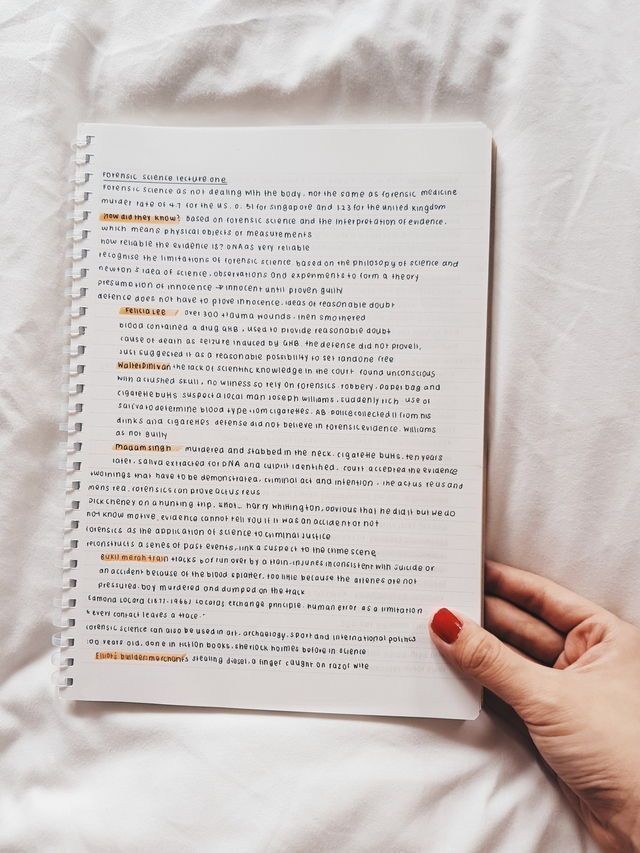 forensic science lecture one
forensic science as not dealing with the body. not the same as forensic medicine
murder rate of 4.7 for the US. 0.51 for singapore and 1.23 for the united kingdom
how did they know? based on forensic science and the interpretation of evidence.
which means physical objects or measurements
how reliable the evidence is? DNA as very reliable
recognise the limitations of forensic science based on the philosophy of science and
newton's idea of science. observations and experiments to form a theory
presumption of innocence → innocent until proven guilty
defence does not have to prove innocence. ideas of reasonable doubt
Felicia Lee over 300 trauma wounds. then smothered
blood contained a drug GHB. used to provide reasonable doubt
cause of death as seizure induced by GHB. the defence did not prove it,
just suggested it as a reasonable possibility to set
the lack of scientific knowledge in the court. found unconscious
with a crushed skull. no witness so rely on forensics. robbery. paper bag and
cigarette butts. suspect a local man joseph williams. suddenly rich. use of
saliva to determine blood type from cigarettes. AB. police collected it from his
drinks and cigarettes. defence did not believe in forensic evidence. williams
as not guilty
murdered and stabbed in the neck. cigarette butts. ten years
later. saliva extracted for DNA and culprit identified. court accepted the evidence
two things that have to be demonstrated. criminal act and intention. the actus reus and
mens rea. forensics can prove actus reus
dick cheney on a hunting trip. shot harry whittington. obvious that he did it but we do
not know motive. evidence cannot tell you if it was an accident or not
forensics as the application of science to criminal justice
reconstructs a series of past events. link a suspect to the crime scene
bukit merah train tracks boy run over by a train. injuries inconsistent with suicide or
an accident because of the blood splatter. too little because the arteries are not
pressured. boy murdered and dumped on the track
edmond locard (1877-1966) locard's exchange principle. human error as a limitation
"every contact leaves a trace."
forensic science can also be used in art. archaeology. sport and international politics
100 years old. done in fiction books. sherlock holmes before in science
Elliott builder merchants stealing diesel. a finger caught on razor wire